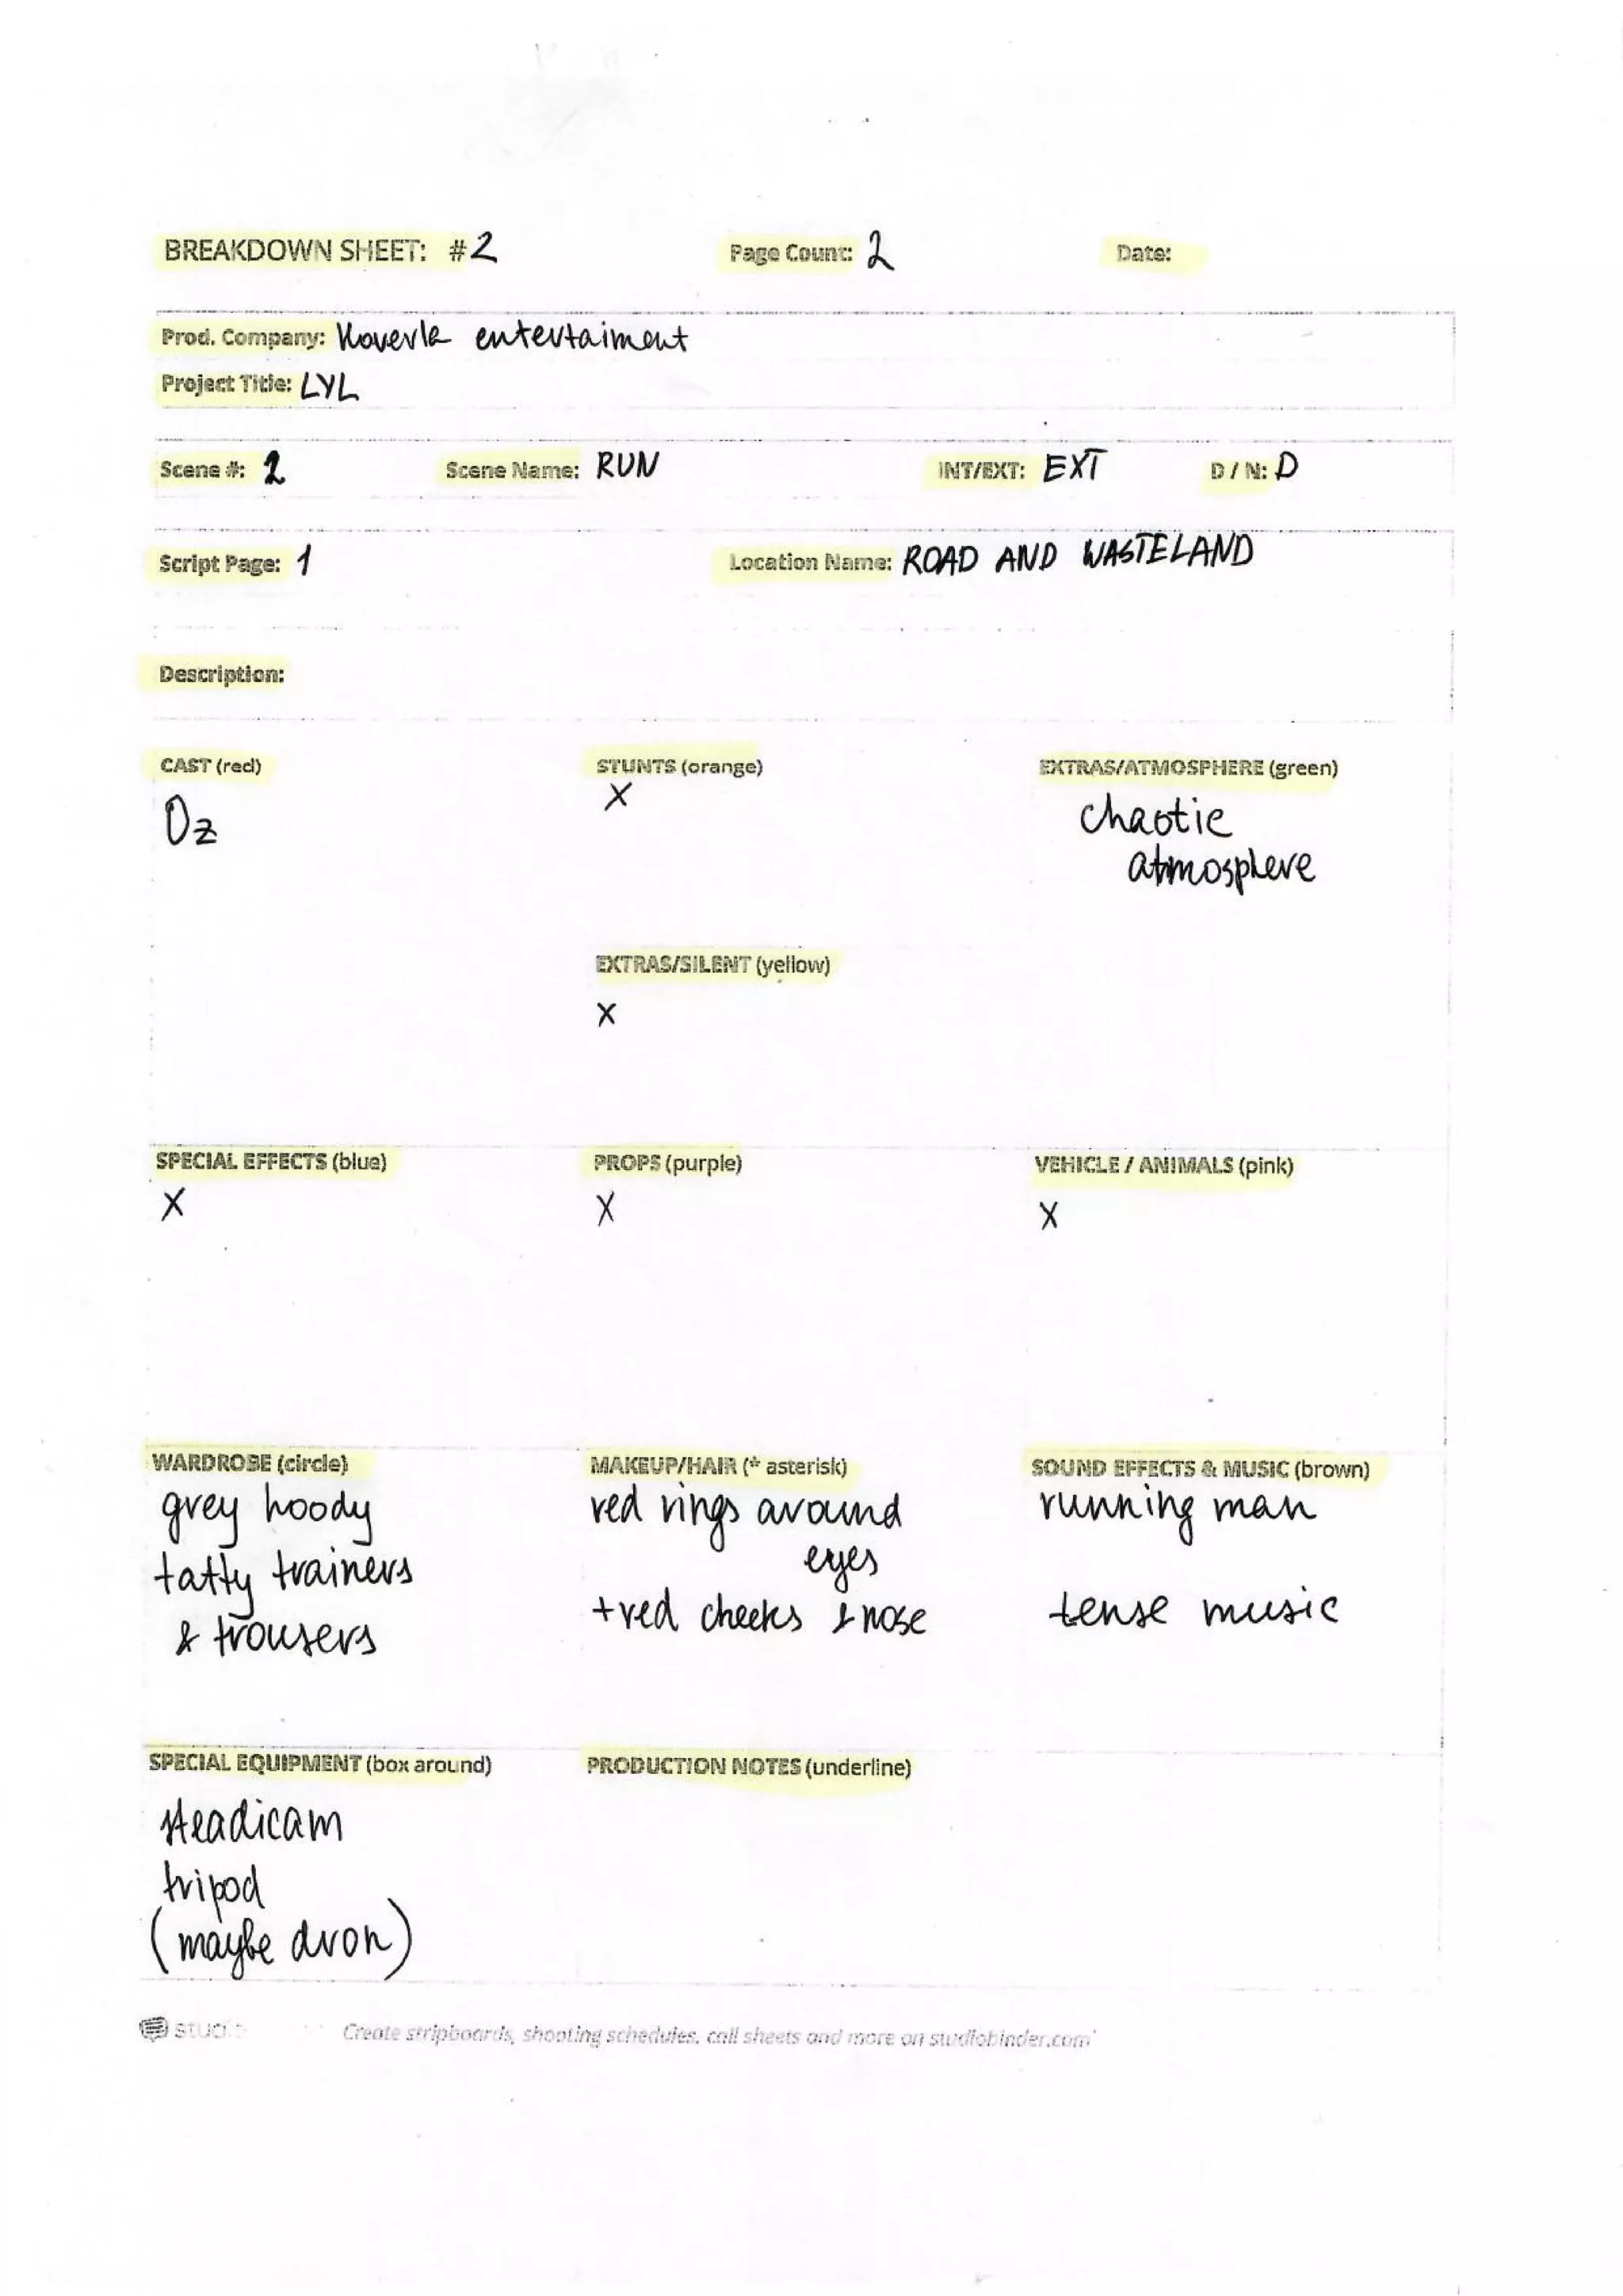 BREAKDOWN SHEET: #2 Page Count: 2 Date:
Prod. Company: Koverla entertaiment
Project Title: LYL
Scene #: 2 Scene Name: RUN INT/EXT: EXT D / N: D
Script Page: 1 Location Name: ROAD AND WASTELAND
Description:
CAST (red) STUNTS (orange) EXTRAS/ATMOSPHERE (green)
Oz X chaotic
atmosphere
EXTRAS/SILENT (yellow)
X
SPECIAL EFFECTS (blue) PROPS (purple) VEHICLE / ANIMALS (pink)
X X X
WARDROBE (circle) MAKEUP/HAIR (* asterisk) SOUND EFFECTS & MUSIC (brown)
grey hoody red rings around running man
tatty trainers eyes
& trousers +red cheeks & nose tense music
SPECIAL EQUIPMENT (box around) PRODUCTION NOTES (underline)
steadicam
tripod
(maybe dron)
Create stripboards, shooting schedules, call sheets and more on studiobinder.com